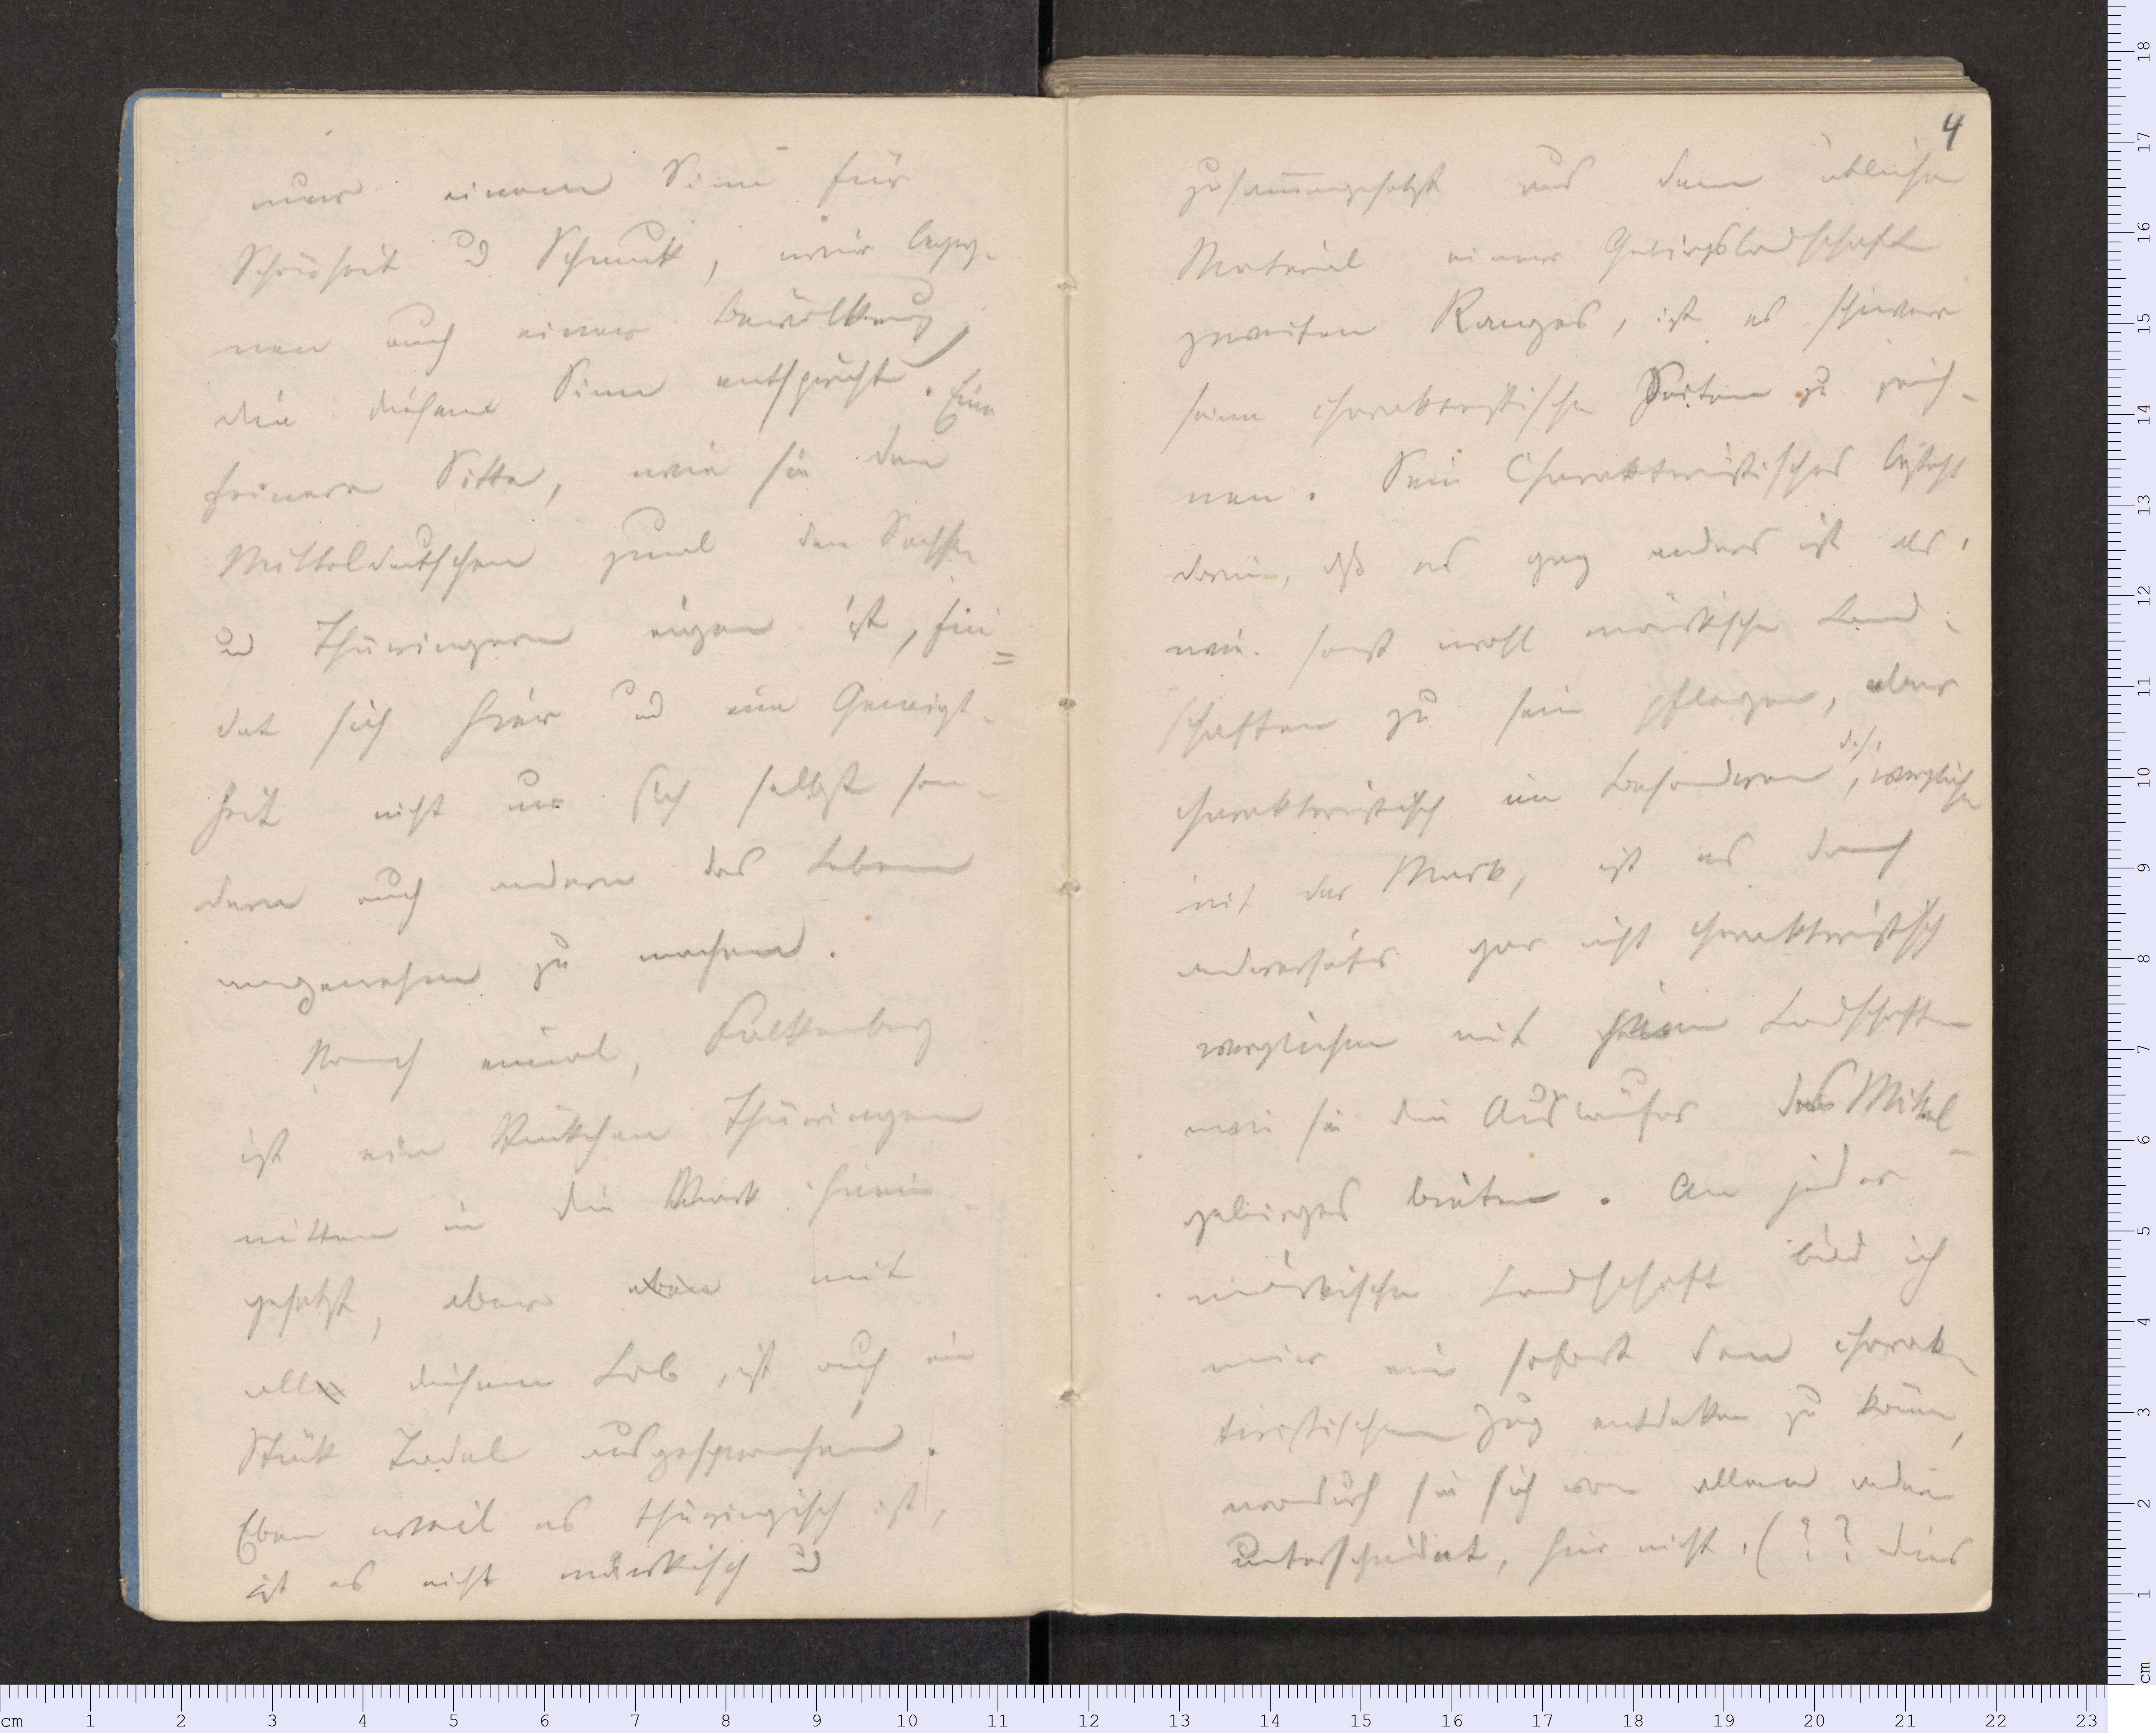 nur einem Sinn für
Schönheit u Schmuck, wir begeg-
nen auch einer Bevölkerung,
die diesem Sinn entspricht. Eine
feinere Sitte, wie sie den
Mitteldeutschen zumal den Sachsen
und Thüringern eigen ist, fin=
det sich hier und eine Geneigt-
heit nicht nur sich selbst son-
dern auch andern das Leben
angenehm zu machen.
Noch einmal, Falkenberg
ist ein Stückchen Thüringen
mitten in die Mark hinein
gesetzt, aber eben mit
alle diesem Lob, ist auch ein
Stück Tadel ausgesprochen.
Eben weil es thüringisch ist,
ist es nicht märkisch u
4
zusammengesetzt aus dem üblichen
Material einer Gebirgslandschaft
zweiten Ranges, ist es schwer
seine charakteristischen Seiten zu zeich-
nen. Sein Charakteristisches besteht
darin, dß es ganz anders ist als
wie sonst wohl märkische Land-
schaften zu sein pflegen, aber
charakteristisch im Besonderen, d. h. verglichen
mit der Mark, ist es doch
anderseits gar nicht charakteristisch
verglichen mit Landschaften
wie sie die Ausläufer des Mittel-
gebirges bieten. An jeder
märkischen Landschaft bild ich
mir ein sofort den charak-
teristischen Zug entdecken zu können,
wodurch sie sich von allen andern
unterscheidet, hier nicht. (?? dies